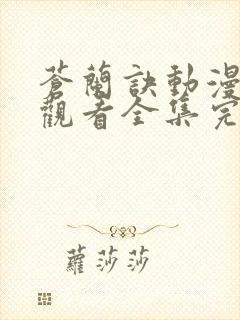 蒼蘭訣動漫
觀看全集完
蘿莎莎